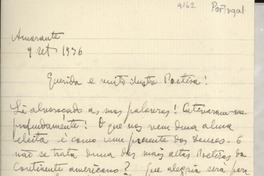 9162 Portugal
Amarante
9 Set 1936
Querida e muito ilustre Poetisa!
Li alvoroçado as suas palavras! Enterneceram-me
profundamente! O que nos vem duma alma
eleita é como um presente dos deuses. E
não se trata duma das mais altas Poetisas do
Continente americano? Que alegria será para